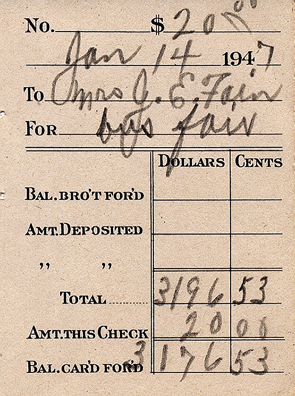 No. $ 20 00
Jan 14 1947
To Mrs J. E. Fain
For bus fair
Dollars Cents
Bal. Bro't For'd
Amt. Deposited
„ „
Total ........ 3196 53
Amt. This Check 20 00
Bal. Car'd For'd 3176 53